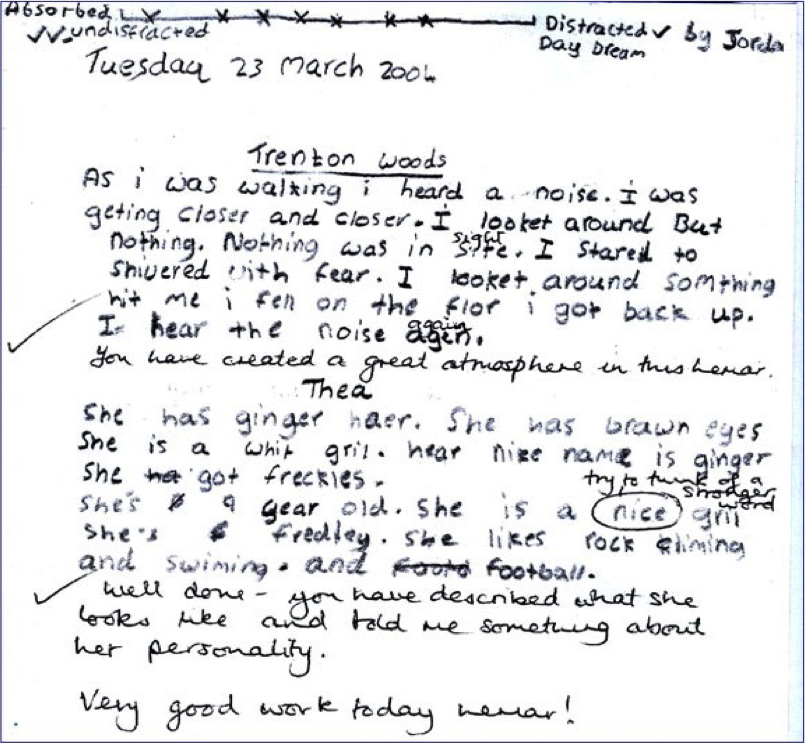 Absorbed
undistracted
Distracted
Day Dream
by Jorda
Tuesday 23 March 2004
Trenton woods
As i was walking i heard a noise. I was
geting closer and closer. I looket around But
nothing. Nothing was in site. sight I stared to
shivered with fear. I looket around somthing
hit me i fell on the flor i got back up.
I hear the noise agen. again
You have created a great atmosphere in this
Thea
She has ginger haer. She has brawn eyes
She is a whit gril. hear nike name is ginger
She got freckles.
try to think of a
stronger
word
She's 9 year old. She is a nice gril
She's fredley. She likes rock climing
and swiming. and football.
Well done - you have described what she
looks like and told me something about
her personality.
Very good work today